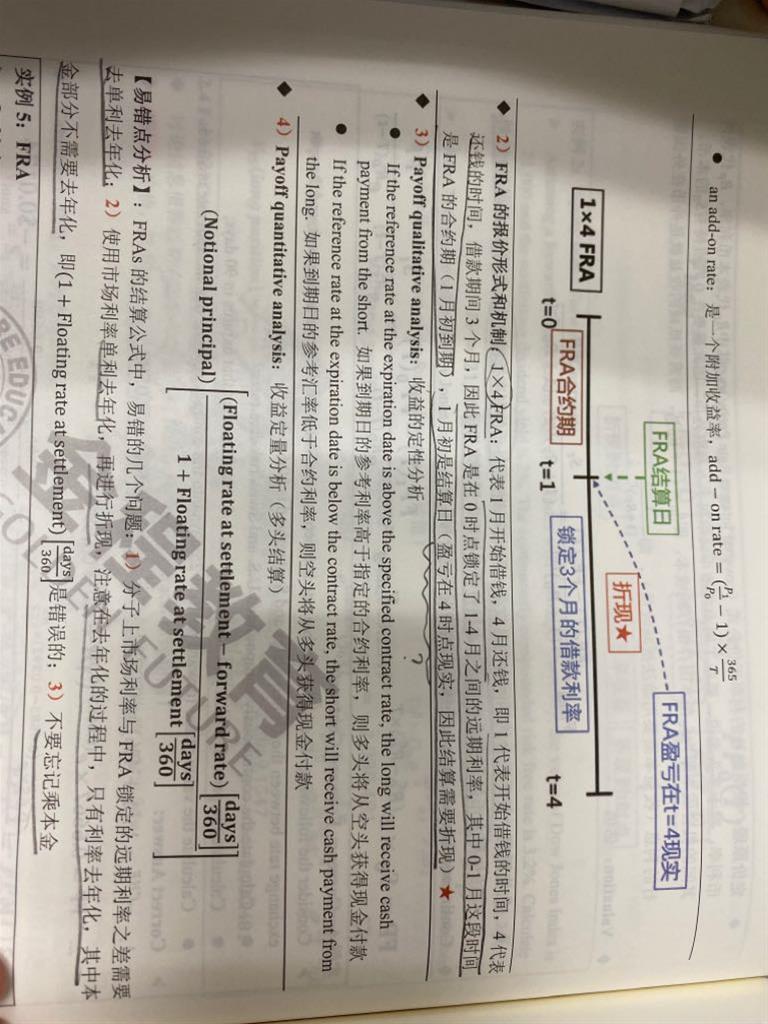 ● an add-on rate：是一个附加收益率，add − on rate = (P₁/P₀ − 1) × 365/T
FRA结算日
FRA盈亏在t=4现实
折现★
1×4 FRA
FRA合约期
锁定3个月的借款利率
t=0
t=1
t=4
◆ 2）FRA 的报价形式和机制，1×4 FRA：代表 1 月开始借钱，4 月还钱，即 1 代表开始借钱的时间，4 代表
还钱的时间，借款期间 3 个月，因此 FRA 是在 0 时点锁定了 1-4 月之间的远期利率，其中 0-1 月这段时间
是 FRA 的合约期（1 月初到期），1 月初是结算日（盈亏在 4 时点现实，因此结算需要折现）★
?
◆ 3）Payoff qualitative analysis：收益的定性分析
● If the reference rate at the expiration date is above the specified contract rate, the long will receive cash
payment from the short. 如果到期日的参考利率高于指定的合约利率，则多头将从空头获得现金付款
● If the reference rate at the expiration date is below the contract rate, the short will receive cash payment from
the long. 如果到期日的参考汇率低于合约利率，则空头将从多头获得现金付款
◆ 4）Payoff quantitative analysis：收益定量分析（多头结算）
(Notional principal) [ (Floating rate at settlement − forward rate) [days/360] / 1 + Floating rate at settlement [days/360] ]
【易错点分析】：FRAs 的结算公式中，易错的几个问题：1）分子上市场利率与 FRA 锁定的远期利率之差需要
去单利去年化；2）使用市场利率单利去年化，再进行折现，注意在去年化的过程中，只有利率去年化，其中本
金部分不需要去年化，即(1 + Floating rate at settlement) [days/360]是错误的；3）不要忘记乘本金
实例 5：FRA
金程教育
GOLDEN FUTURE